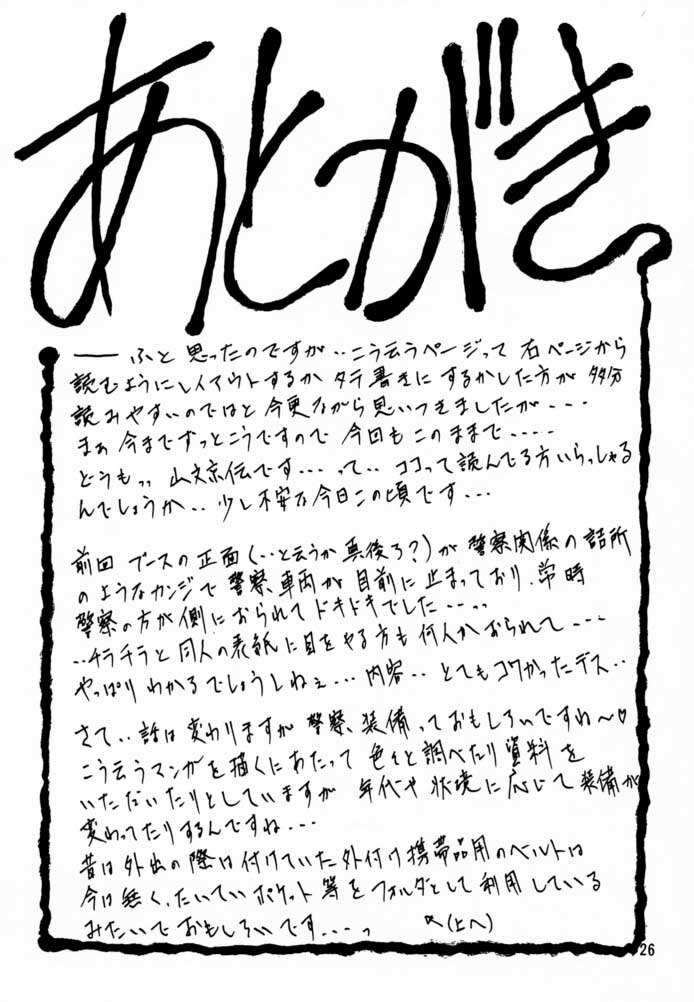 あとがき
── ふと思ったのですが‥こう云うページって右ページから
読むようにレイアウトするかタテ書きにするかした方が多分
読みやすいのではと今更ながら思いつきましたが---
まぁ今までずっとこうですので今回もこのままで-----
どうもっ、山文京伝です---って‥ココって読んでる方いらっしゃる
んでしょうか‥少し不安な今日この頃です---
前回ブースの正面(‥と云うか真後ろ?)が警察関係の詰所
のようなカンジで警察車両が目前に止まっており、常時
警察の方が側におられてドキドキでした----
‥チラチラと同人の表紙に目をやる方も何人かおられて---
やっぱりわかるでしょうしねぇ---内容‥とてもコワかったデス‥
さて‥話は変わりますが警察、装備っておもしろいですね〜♡
こう云うマンガを描くにあたって色々と調べたり資料を
いただいたりとしていますが年代や状境に応じて装備が
変わってたりするんですね---
昔は外出の際は付けていた外付け携帯品用のベルトは
今は無く、たいていポケット等をフォルダとして利用している
みたいでおもしろいです---っ (上へ)
26